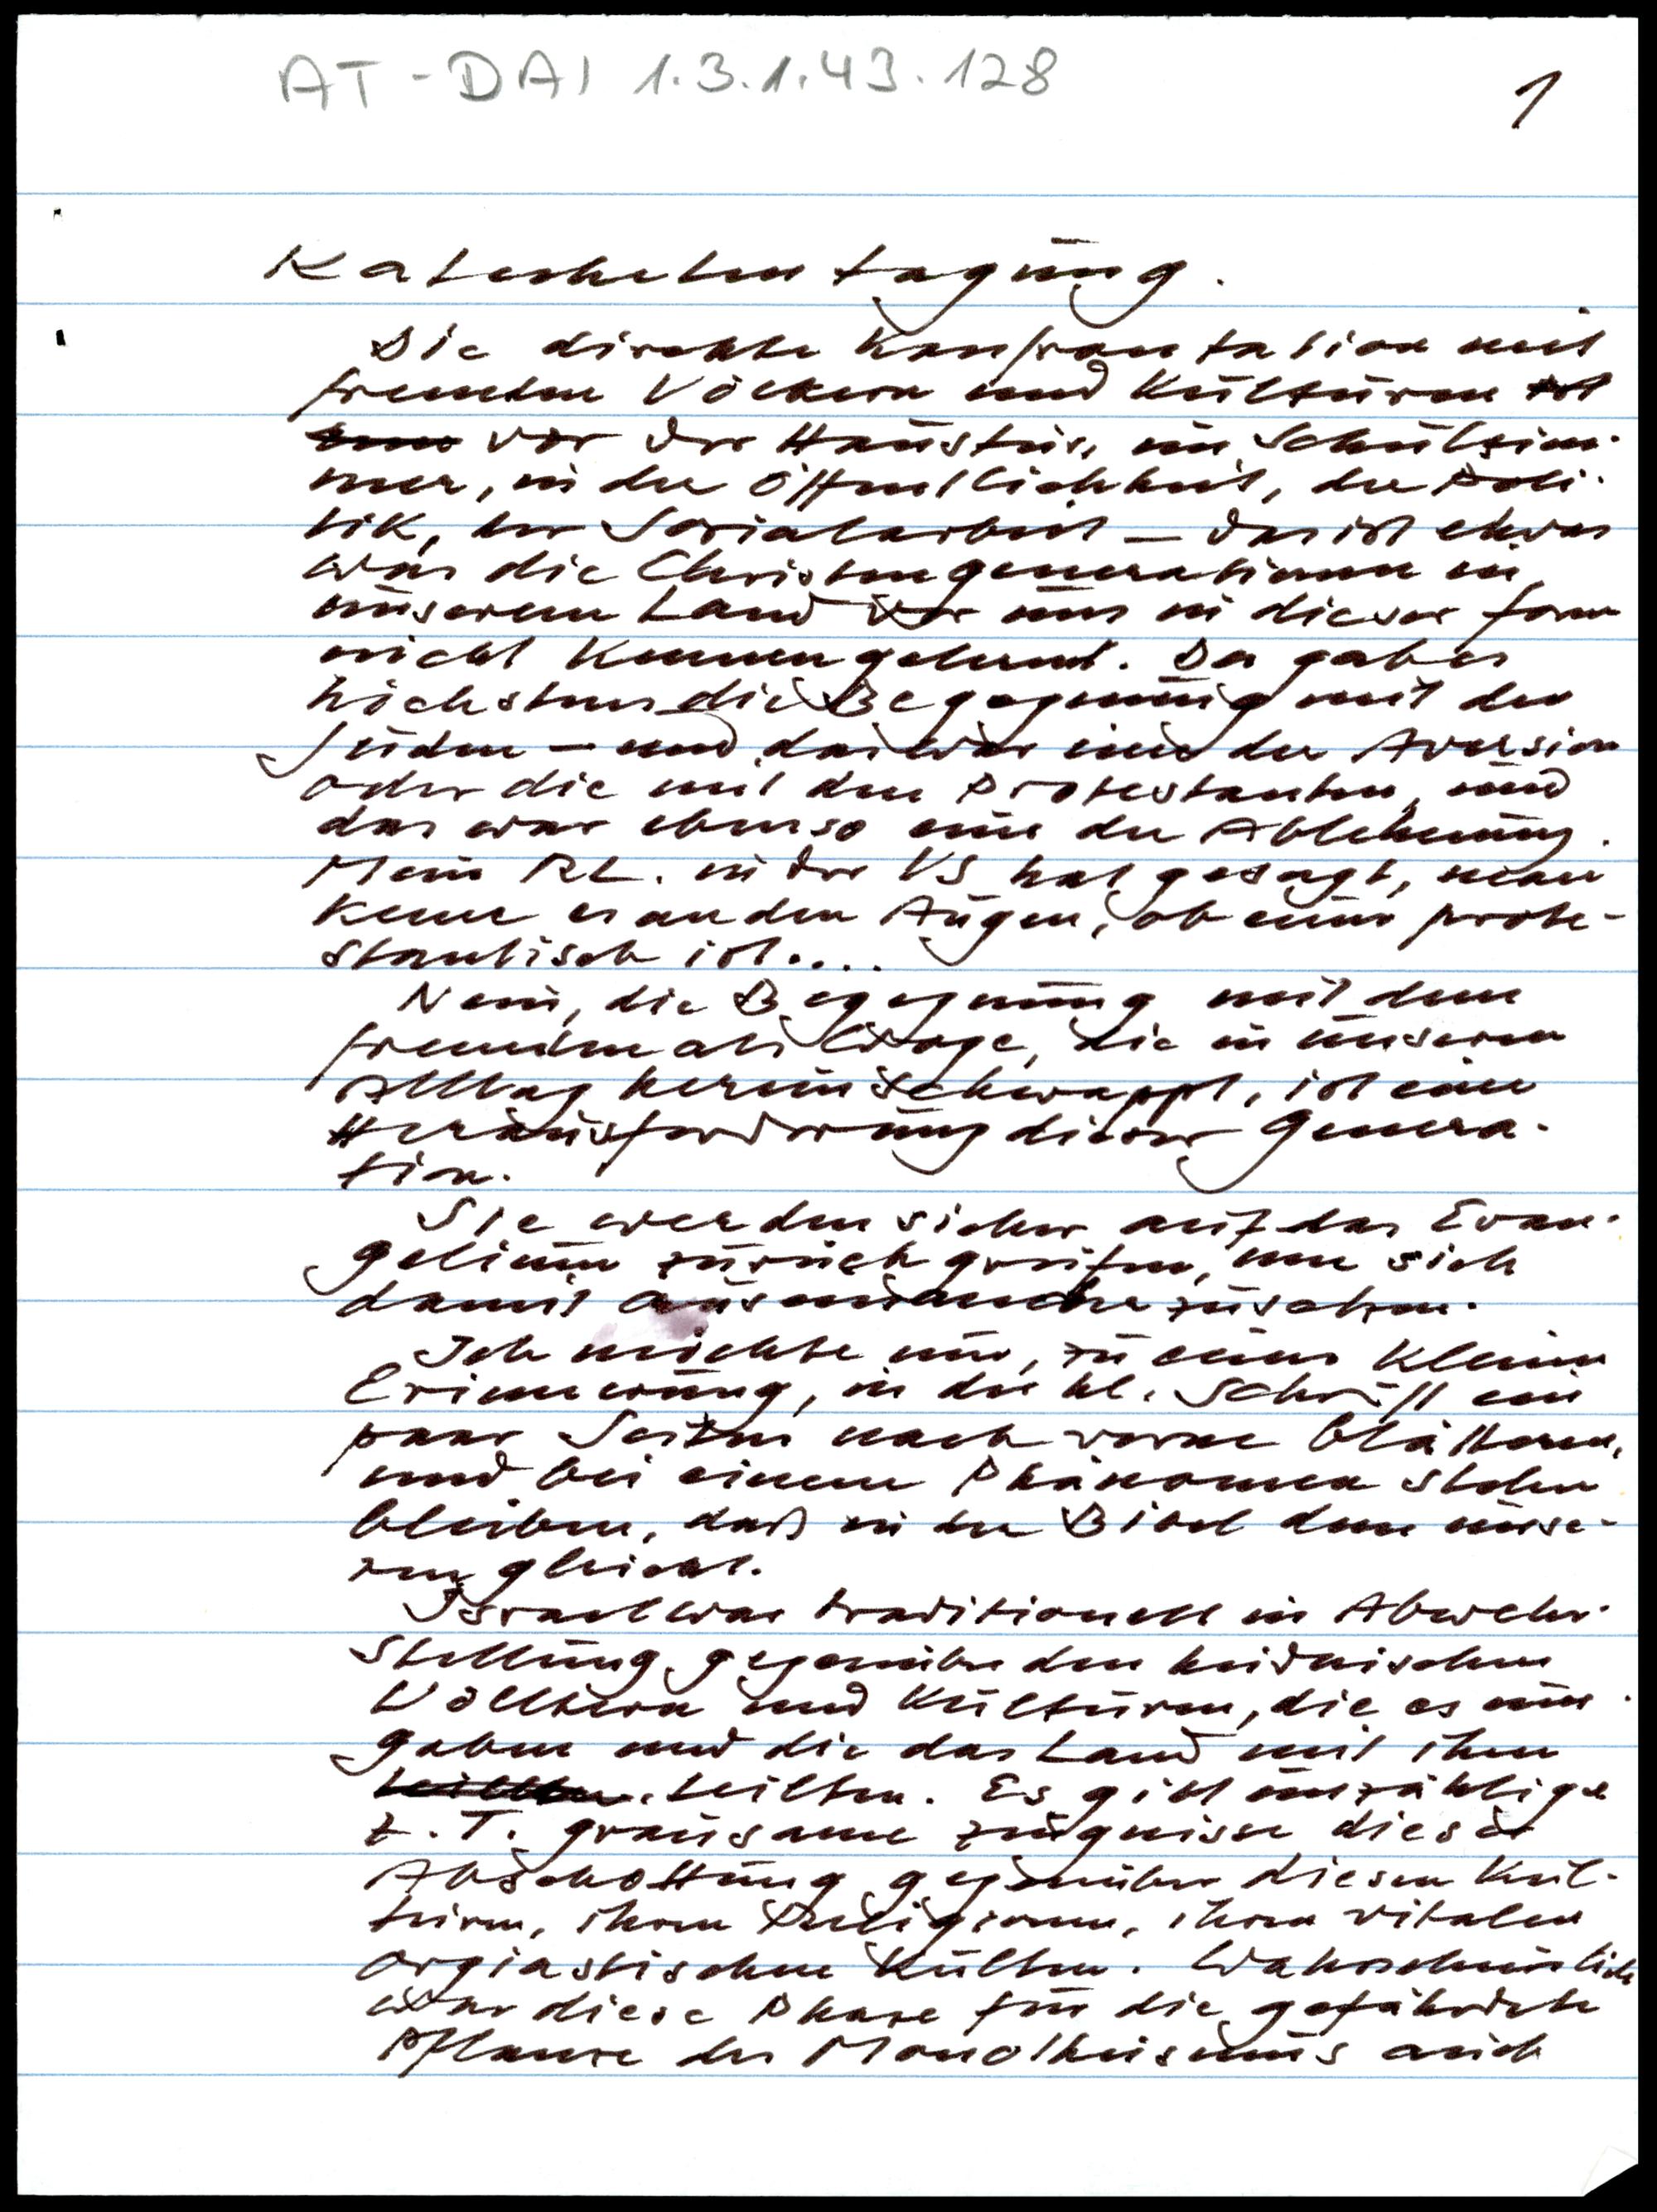 AT-DAI 1.3.1.43.128
1
Katechetentagung.
Die direkte Konfrontation mit
fremden Völkern und Kulturen ist
vor der Haustür, im Schulzim-
mer, in der Öffentlichkeit, der Poli-
tik, der Sozialarbeit – das ist etwas
was die Christengenerationen in
unserem Land vor uns in dieser Form
nicht kennengelernt. Da gab es
höchstens die Begegnung mit den
Juden – und das war eine der Aversion
oder die mit den Protestanten, und
das war ebenso eine der Ablehnung.
Mein RL. in der VS hat gesagt, man
kenne es an den Augen, ob einer prote-
stantisch ist....
Nein, die Begegnung mit dem
Fremden als Woge, die in unseren
Alltag hereinschwappt, ist eine
Herausforderung dieser Genera-
tion.
Sie werden sicher auf das Evan-
gelium zurückgreifen, um sich
damit auseinanderzusetzen.
Ich möchte nur, zu einer kleinen
Erinnerung, in der hl. Schrift ein
paar Seiten nach vorne blättern,
und bei einem Phänomen stehen
bleiben, daß in der Bibel dem unse-
ren gleicht.
Israel war traditionell in Abwehr-
stellung gegenüber den heidnischen
Völkern und Kulturen, die es um-
gaben und die das Land mit ihm
teilten. teilten. Es gibt unzählige
z.T. grausame Zeugnisse dieser
Abschottung gegenüber diesen Kul-
turen, ihren Religionen, ihren vitalen
orgiastischen Kulten. Wahrscheinlich
war diese Phase für die gefährdete
Pflanze des Monotheismus auch